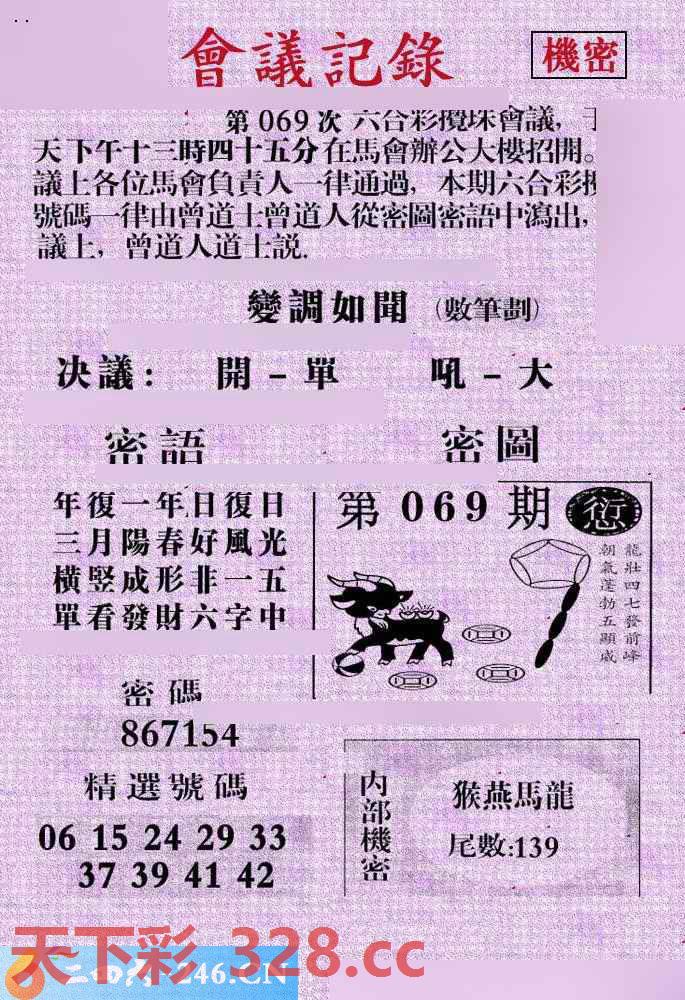 會議記錄
機密
第 069 次 六合彩攪珠會議,
天下午十三時四十五分在馬會辦公大樓招開。
議上各位馬會負責人一律通過, 本期六合彩
號碼一律由曾道士曾道人從密圖密語中瀉出,
議上, 曾道人道士説.
變調如聞 (數筆劃)
决議: 開 - 單 吼 - 大
密語
年復一年日復日
三月陽春好風光
橫竖成形非一五
單看發財六字中
密圖
第 069 期
龍壯四七發前峰
朝氣蓬勃五顯威
密碼
867154
精選號碼
06 15 24 29 33
37 39 41 42
内部機密
猴燕馬龍
尾數:139
天下彩 328.cc
246.CN